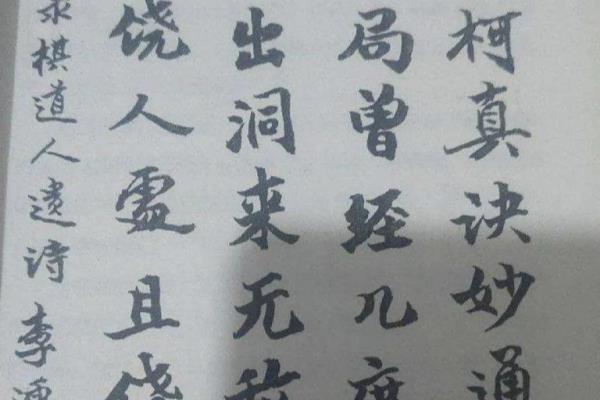 柯真诀妙通
局曾经几度
出洞来无敌
饶人处且饶
录棋道人遗诗 李